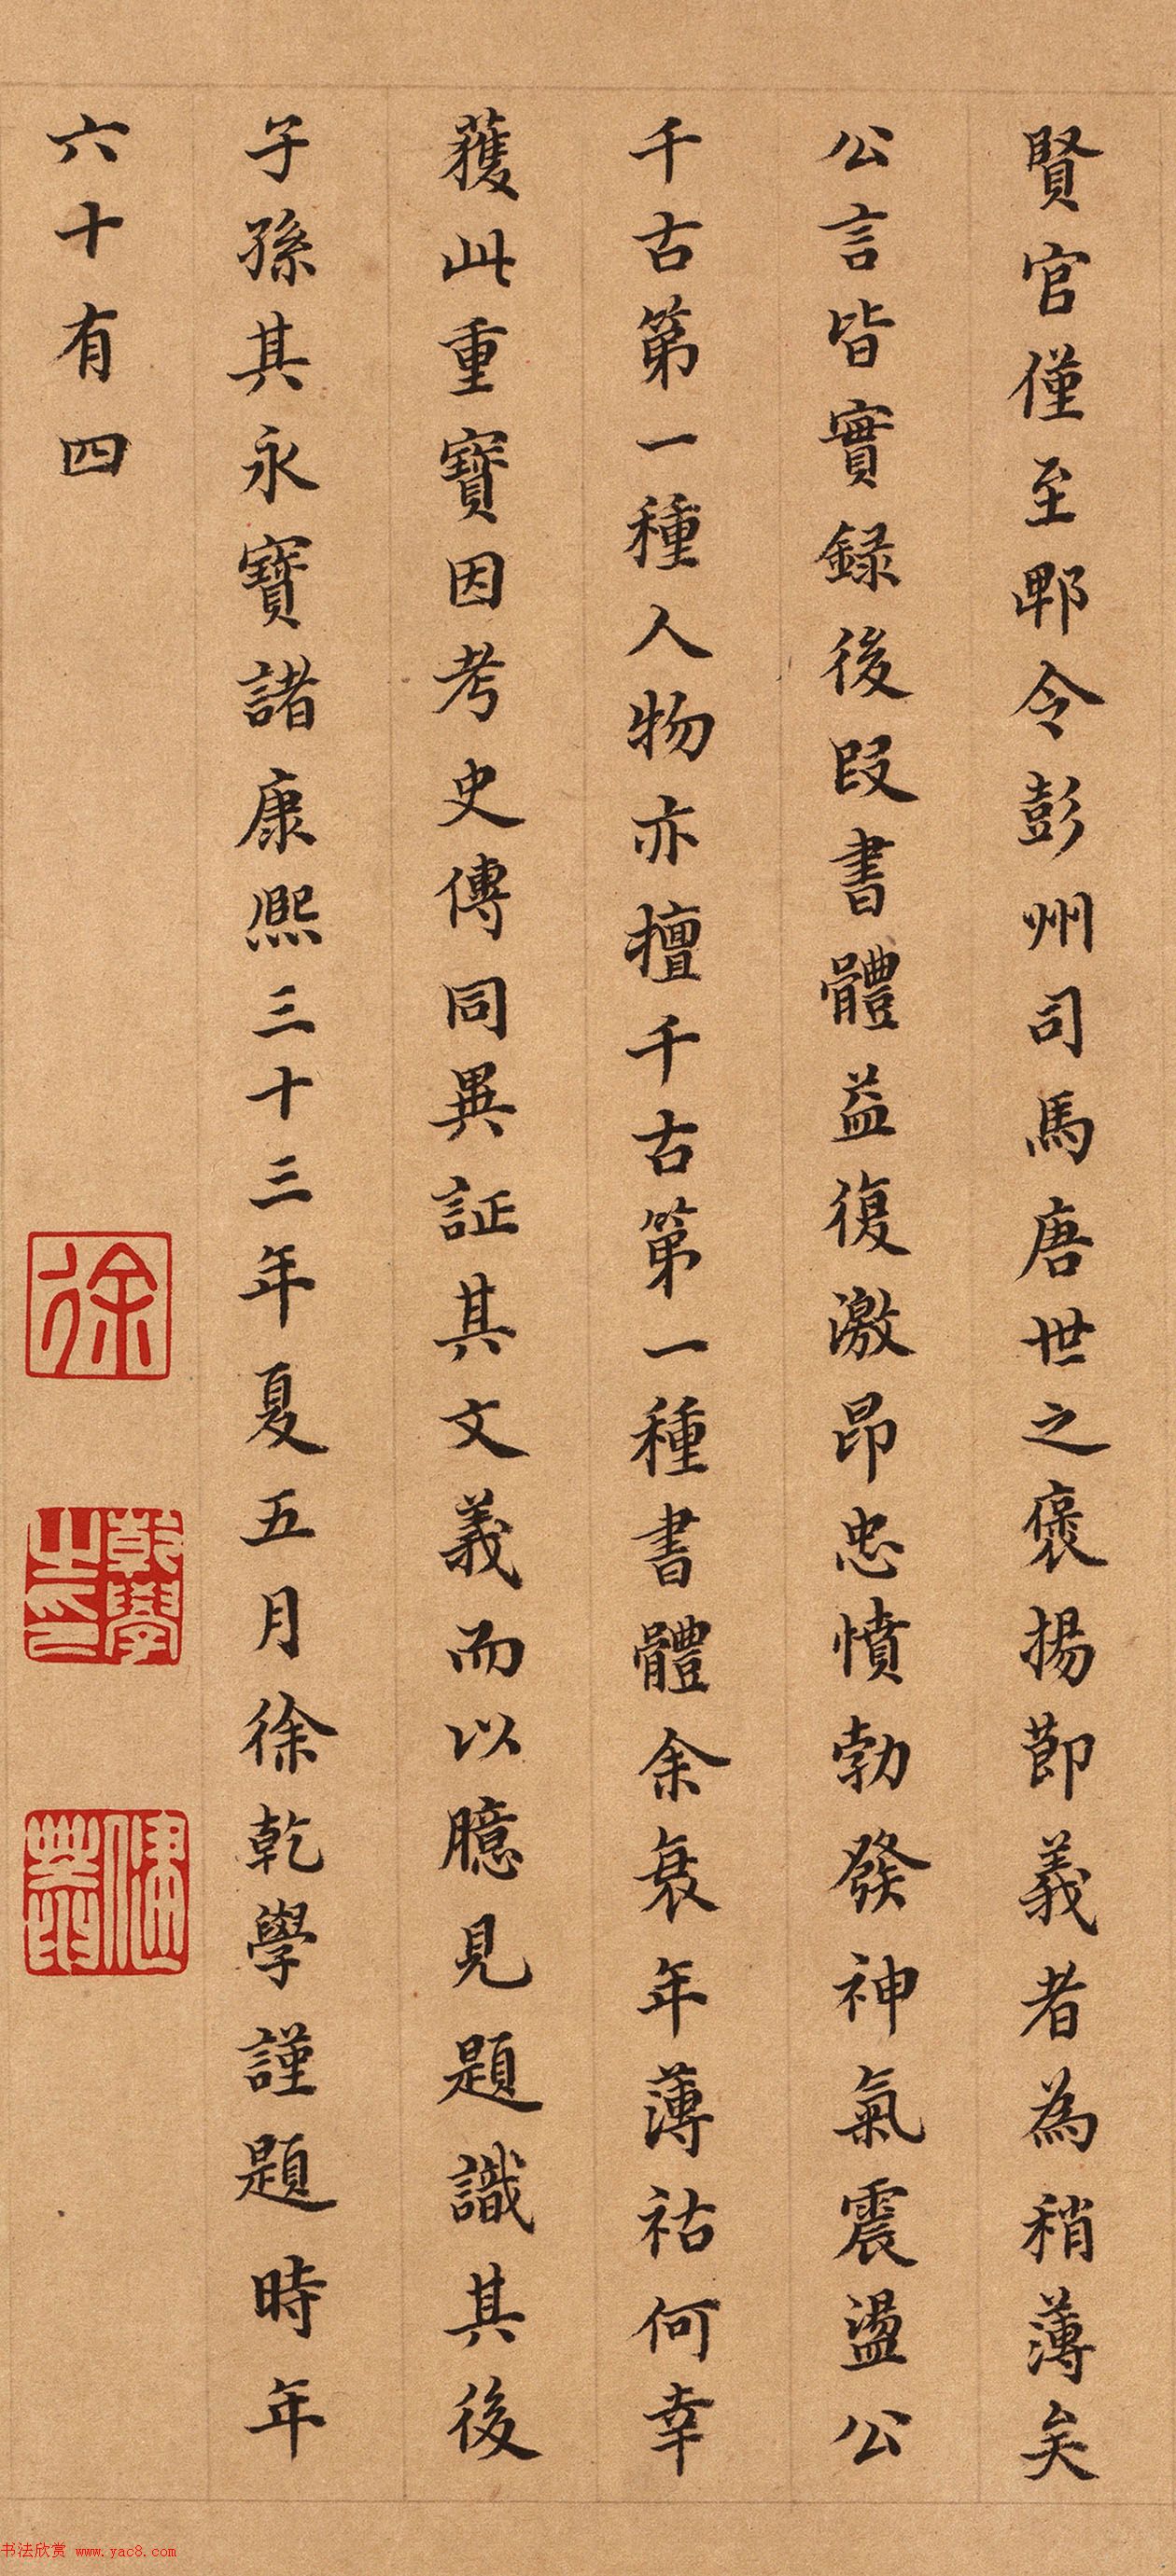 賢官僅至郫令彭州司馬唐世之褒揚節義者為稍薄矣
公言皆實録後段書體益復激昂忠憤勃發神氣震盪公
千古第一種人物亦擅千古第一種書體余衰年薄祜何幸
獲此重寶因考史傳同異証其文義而以臆見題識其後
子孫其永寶諸康熙三十三年夏五月徐乾學謹題時年
六十有四
徐
乾學之印
书法欣赏 www.yac8.com